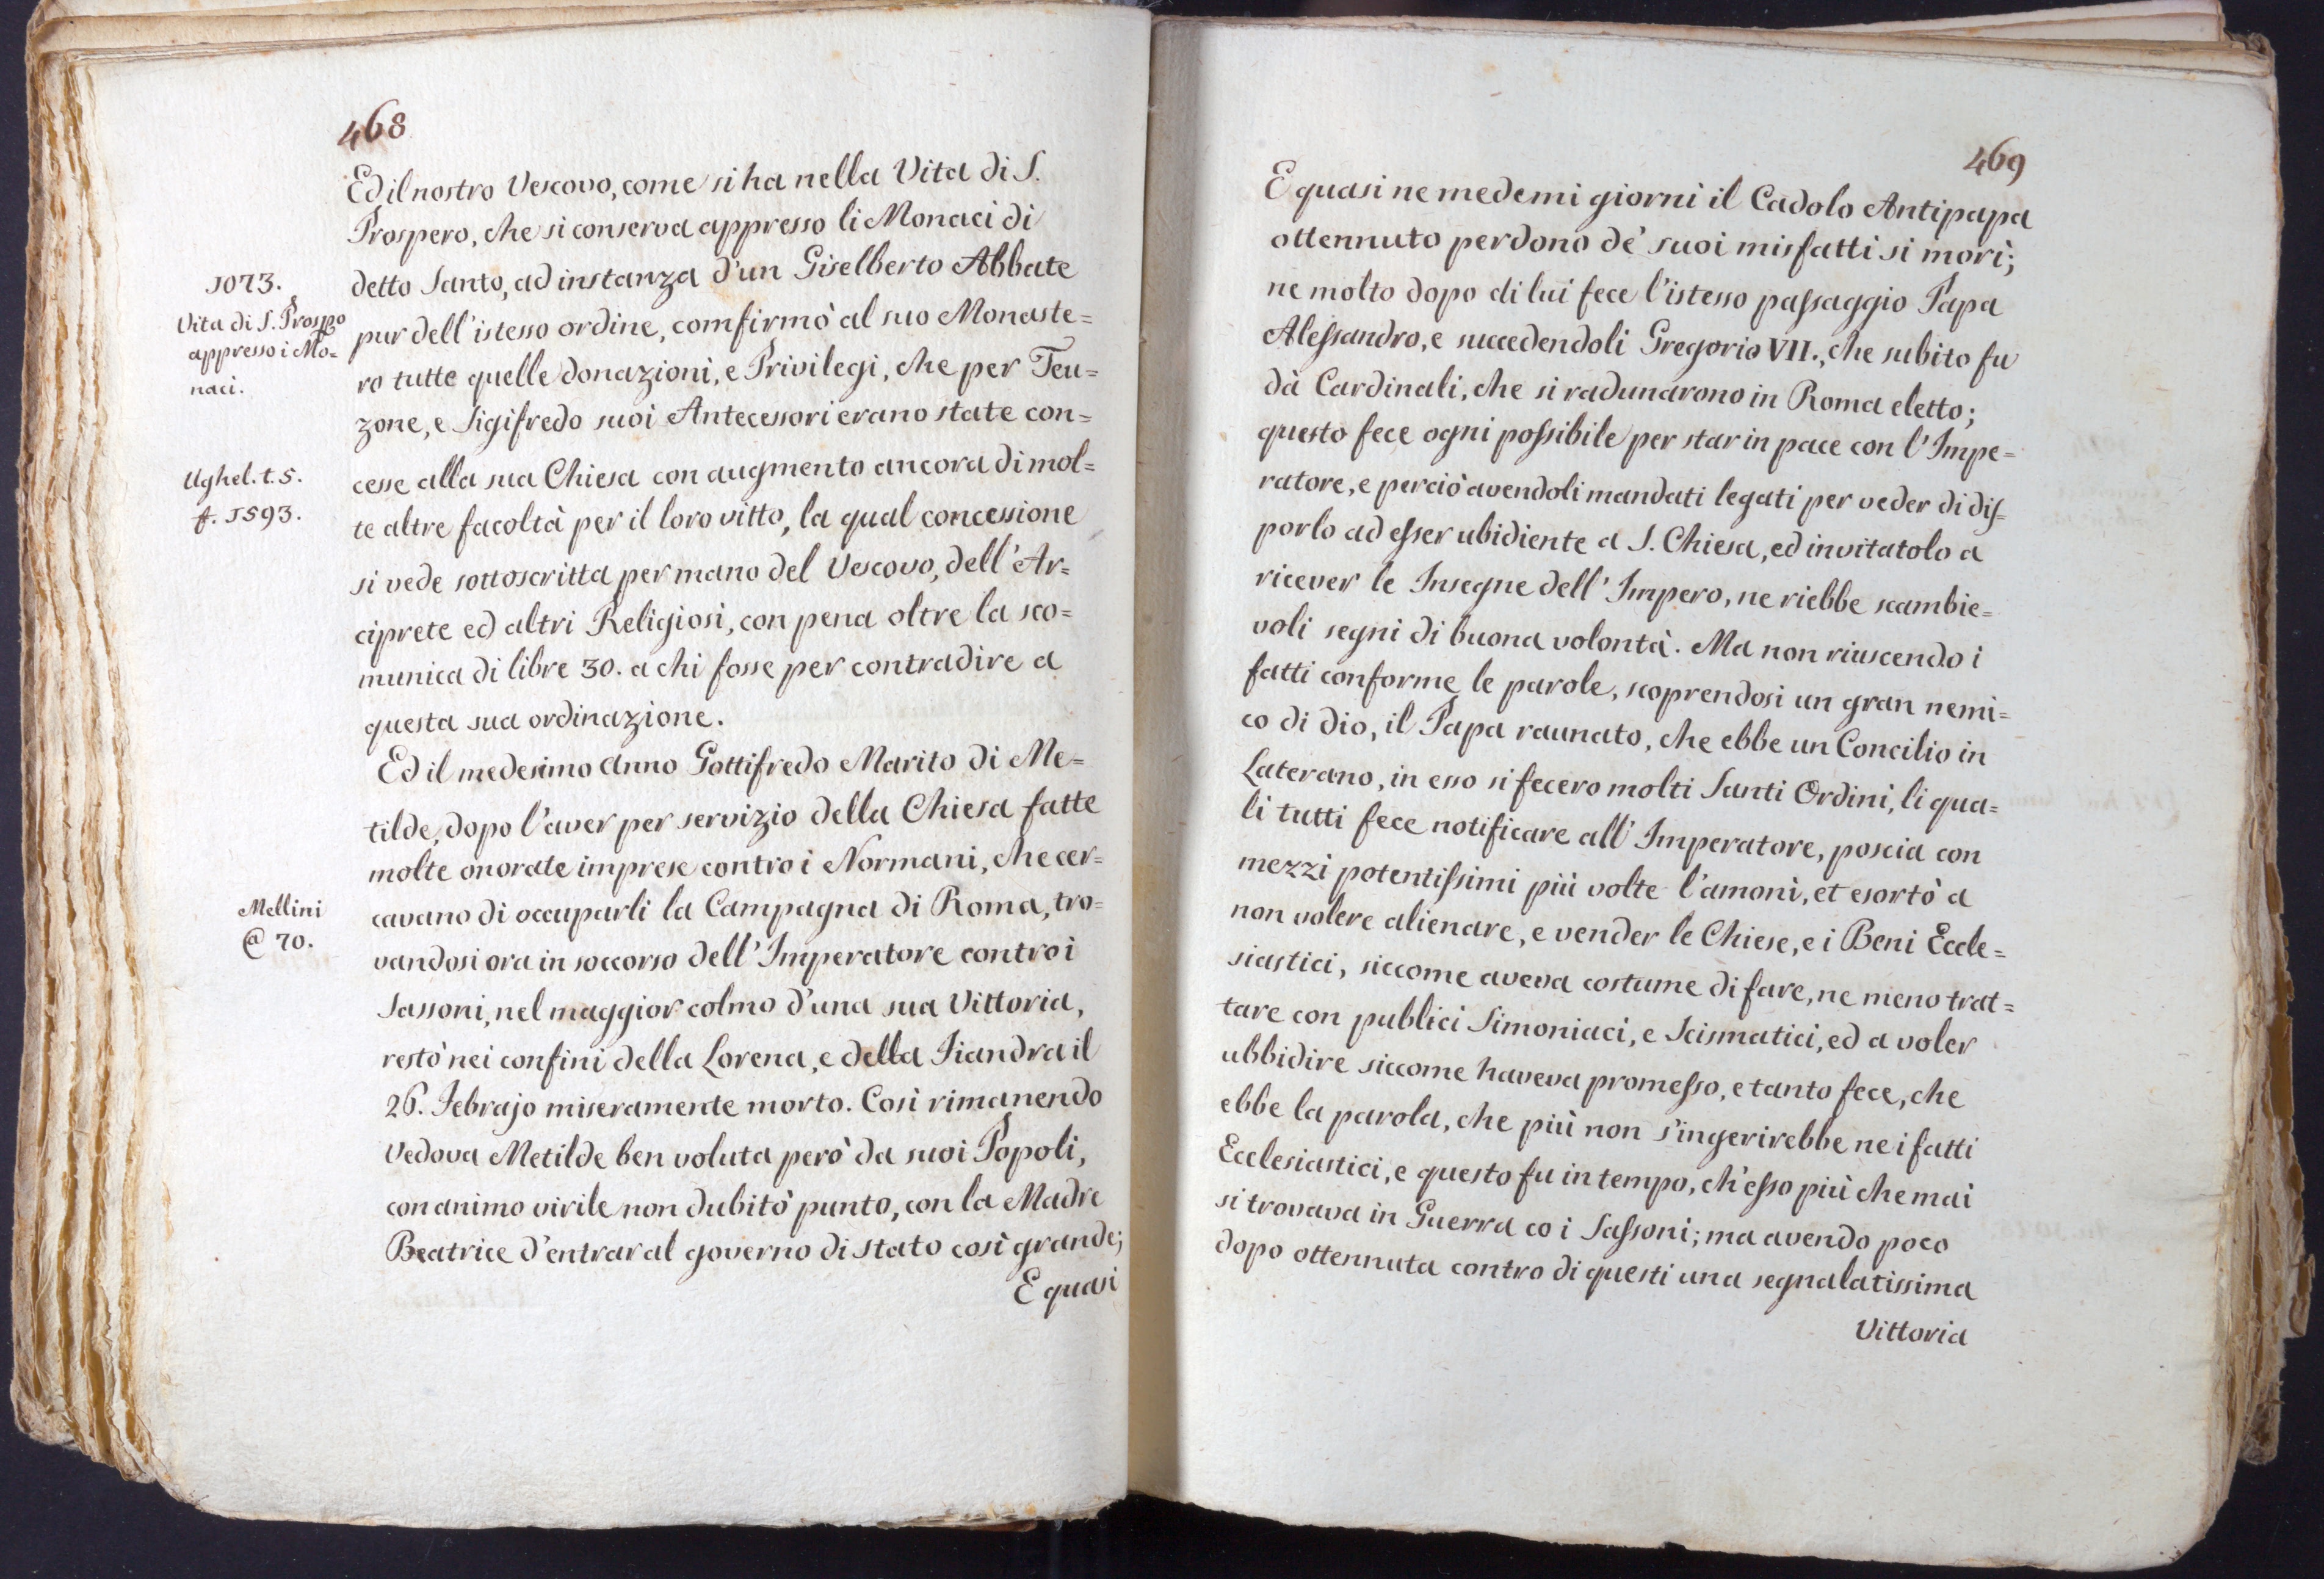 468
Ed il nostro Vescovo, come si ha nella Vita di S.
Prospero, che si conserva appresso li Monaci di
detto Santo, ad instanza d'un Giselberto Abbate
pur dell'istesso ordine, comfirmò al suo Monaste=
ro tutte quelle donazioni, e Privilegi, che per Teu=
zone, e Sigifredo suoi Antecessori erano state con=
cesse alla sua Chiesa con augmento ancora di mol=
te altre facoltà per il loro vitto, la qual concessione
si vede sottoscritta per mano del Vescovo, dell'Ar=
ciprete ed altri Religiosi, con pena oltre la sco=
munica di libre 30. a chi fosse per contradire a
questa sua ordinazione.
Ed il medesimo Anno Gottifredo Marito di Me=
tilde, dopo l'aver per servizio della Chiesa fatte
molte onorate imprese contro i Normani, che cer=
cavano di occuparli la Campagna di Roma, tro=
vandosi ora in soccorso dell'Imperatore contro i
Sassoni, nel maggior colmo d'una sua Vittoria,
restò nei confini della Lorena, e della Fiandra il
26. Febrajo miseramente morto. Così rimanendo
Vedova Metilde ben voluta però da suoi Popoli,
con animo virile non dubitò punto, con la Madre
Beatrice d'entrar al governo di stato così grande;
E quasi
1073.
Vita di S. Prospo
appresso i Mo=
naci.
Ughel. t. 5.
f. 1593.
Mellini
@ 70.
469
E quasi ne medemi giorni il Cadolo Antipapa
ottennuto perdono de' suoi misfatti si morì;
ne molto dopo di lui fece l'istesso passaggio Papa
Alessandro, e succedendoli Gregorio VII., che subito fu
dà Cardinali, che si radunarono in Roma eletto;
questo fece ogni possibile per star in pace con l'Impe=
ratore, e perciò avendoli mandati legati per veder di dis=
porlo ad esser ubidiente a S. Chiesa, ed invitatolo a
ricever le Insegne dell'Impero, ne riebbe scambie=
voli segni di buona volontà. Ma non riuscendo i
fatti conforme le parole, scoprendosi un gran nemi=
co di dio, il Papa raunato, che ebbe un Concilio in
Laterano, in esso si fecero molti Santi Ordini, li qua=
li tutti fece notificare all'Imperatore, poscia con
mezzi potentissimi più volte l'amonì, et esortò a
non volere alienare, e vender le Chiese, e i Beni Eccle=
siastici, siccome aveva costume di fare, ne meno trat=
tare con publici Simoniaci, e Scismatici, ed a voler
ubbidire siccome haveva promesso, e tanto fece, che
ebbe la parola, che più non s'ingerirebbe ne i fatti
Ecclesiastici, e questo fu in tempo, ch'esso più che mai
si trovava in Guerra co i Sassoni; ma avendo poco
dopo ottennuta contro di questi una segnalatissima
Vittoria